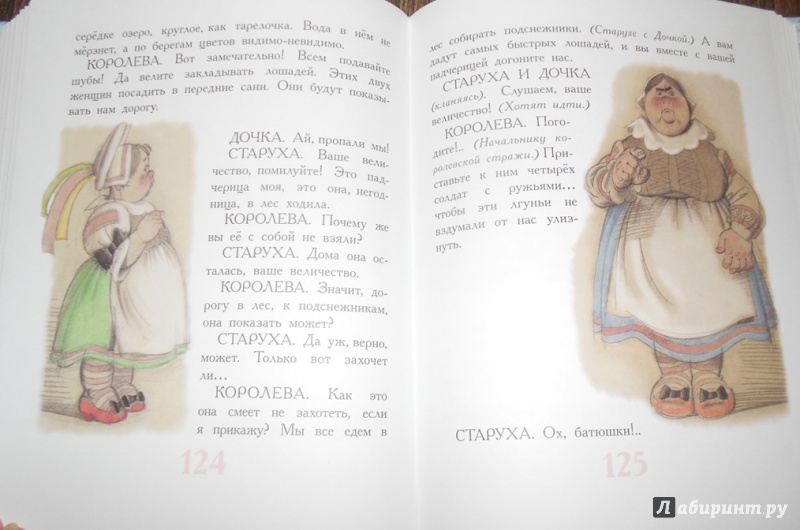 середке озеро, круглое, как тарелочка. Вода в нём не
мёрзнет, а по берегам цветов видимо-невидимо.
КОРОЛЕВА. Вот замечательно! Всем подавайте
шубы! Да велите закладывать лошадей. Этих двух
женщин посадить в передние сани. Они будут показы-
вать нам дорогу.
ДОЧКА. Ай, пропали мы!
СТАРУХА. Ваше вели-
чество, помилуйте! Это пад-
черица моя, это она, негод-
ница, в лес ходила.
КОРОЛЕВА. Почему же
вы её с собой не взяли?
СТАРУХА. Дома она ос-
талась, ваше величество.
КОРОЛЕВА. Значит, до-
рогу в лес, к подснежникам,
она показать может?
СТАРУХА. Да уж, верно,
может. Только вот захочет
ли...
КОРОЛЕВА. Как это
она смеет не захотеть, если
я прикажу? Мы все едем в
124
лес собирать подснежники. (Старухе с Дочкой.) А вам
дадут самых быстрых лошадей, и вы вместе с вашей
падчерицей догоните нас.
СТАРУХА И ДОЧКА
(кланяясь). Слушаем, ваше
величество! (Хотят идти.)
КОРОЛЕВА. Пого-
дите!.. (Начальнику ко-
ролевской стражи.) При-
ставьте к ним четырёх
солдат с ружьями...
чтобы эти лгуньи не
вздумали от нас улиз-
нуть.
СТАРУХА. Ох, батюшки!..
125
Лабиринт.ру